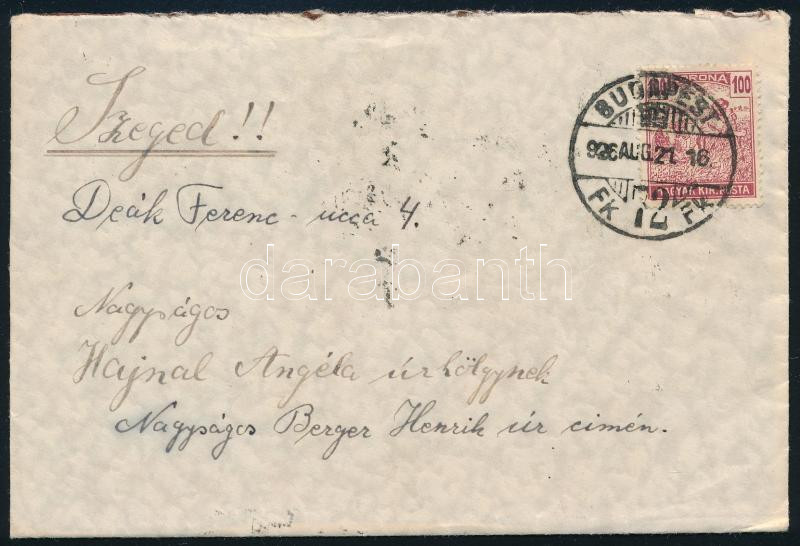 Szeged!!
Deák Ferenc - ucca 4.
Nagyságos
Hajnal Angéla úrhölgynek
Nagyságos Berger Henrik úr cimén.
KORONA 100
MAGYAR KIR. POSTA
BUDAPEST
926 AUG. 21. 16
FK 72 FK
darabanth